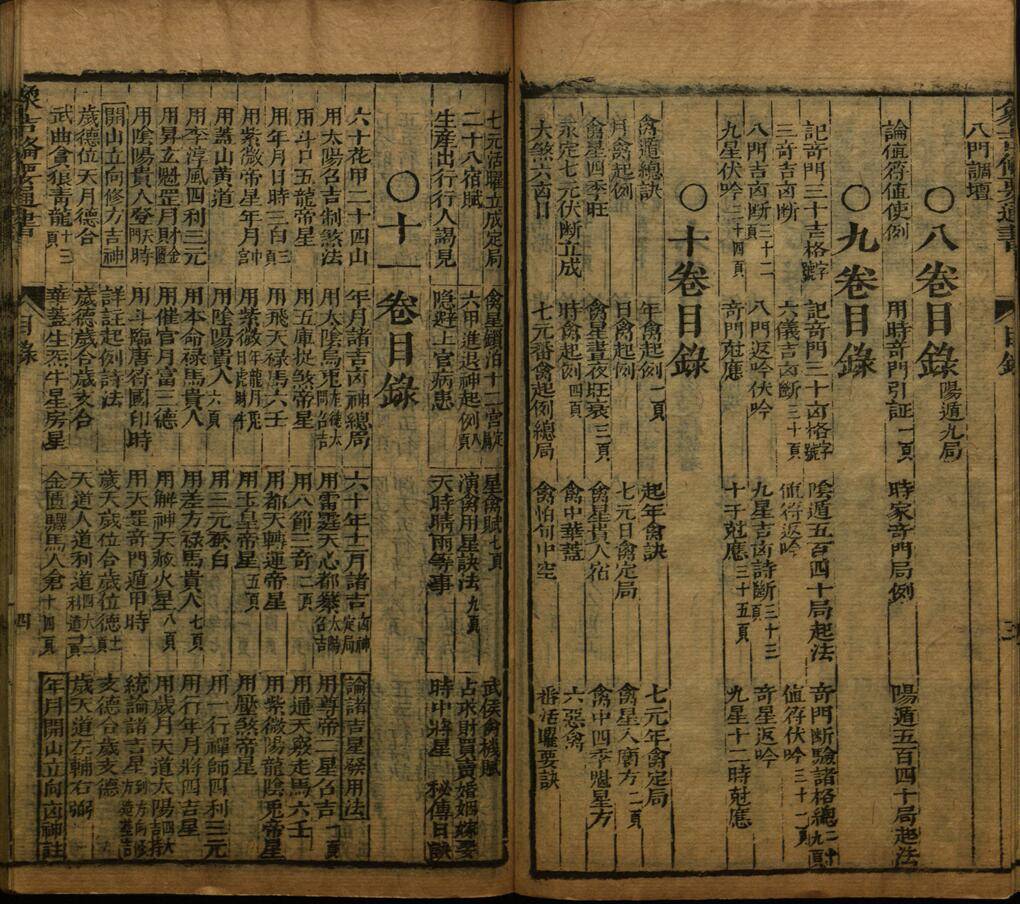 八門謂壇
○八卷目錄 陽遁九局
論值符值使例 用時奇門引証一頁 時家奇門局例 陽遁五百四十局起法
○九卷目錄
記奇門三十吉格字號 記奇門三十凶格字號 陰遁五百四十局起法 奇門断驗諸格總
三奇吉凶断 六儀吉凶断三十頁 值符返吟 值符伏吟三十一頁
八門吉凶断三十二頁 八門返吟伏吟 九星吉凶詩断三十三頁 奇星返吟
九星伏吟三十四頁 奇門尅應 十干尅應三十五頁 九星十二時尅應
○十卷目錄
禽遁總訣 年禽起例一頁 起年禽訣 七元年禽定局
月禽起例 日禽起例 七元日禽定局 禽星入廟方二頁
禽星四季旺 禽星晝夜旺衰三頁 禽星貴人宿 禽中四季魁星方
永定七元伏断立成 時禽起例四頁 禽中華蓋 六惡禽
大煞六凶日 七元番禽起例總局 禽怕旬中空 番活曜要訣
七元活曜立成定局 禽星鎖泊十二宮 星禽賦七頁 武侯禽機賦
二十八宿賦 六甲進退神起例 演禽用星訣法九頁 占求財買賣婚姻嫁娶
生產出行行人謁見 隐避上官病患 天時晴雨等事 時中將星 秘傳日訣
○十一卷目錄
六十花甲二十四山 年月諸吉凶神總局 六十年十二月諸吉凶神定局 論諸吉星發用法
用太陽名吉制煞法 用太陰烏兔 用雷霆天心都纂 用尊帝二星名吉一頁
用斗口五龍帝星 用五庫捉煞帝星 用八節三奇二頁 用通天竅走馬六壬
用年月日時三白三頁 用飛天禄馬六壬 用都天轉運帝星 用紫微陽龍陰兎帝星
用紫微帝星年月 用紫微 用玉皇帝星五頁 用壓煞帝星
用蓋山黄道 用陰陽貴人六頁 用三元紫白 用一行禪師四利三元
用李淳風四利三元 用本命禄馬貴人 用差方禄馬貴人七頁 用行年月將四吉星
用昇立魁罡月財金匱 用催官月富三德 用解神天赦火星八頁 用歲月天道太陽
用陰陽貴人登天門時 用斗臨唐符國印時 用天罡奇門遁甲時 統論諸吉星
開山立向修方吉神 詳註起例詩法 歲天歲位合歲位德十二頁 支德合歲支德
歲德位天月德合 歲德歲合歲支合 天道人道利道 歲天道左輔右弼
武曲貪狼青龍十三 華蓋生炁牛星房星 金匱驛馬人倉十四頁 年月開山立向凶神註
目錄 四